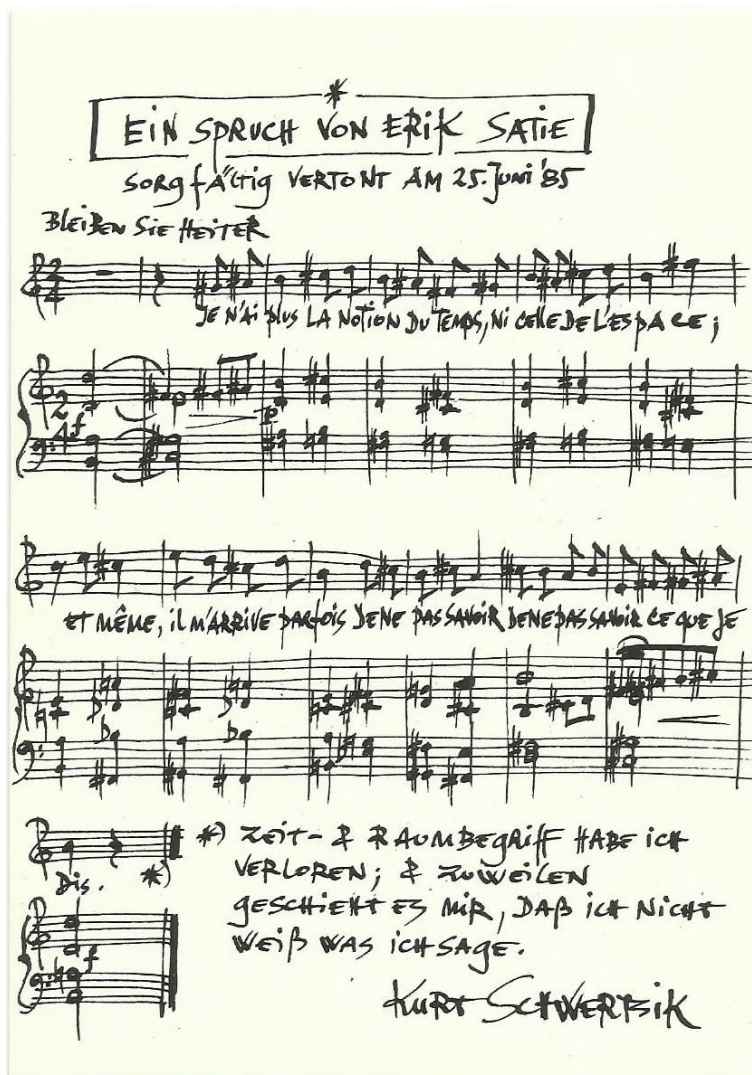 *
EIN SPRUCH VON ERIK SATIE
SORGFÄLTIG VERTONT AM 25. JUNI '85
BLEIBEN SIE HEITER
JE N'AI PLUS LA NOTION DU TEMPS, NI CELLE DE L'ESPACE;
f
p
ET MÊME, IL M'ARRIVE PARFOIS DE NE PAS SAVOIR DE NE PAS SAVOIR CE QUE JE
DIS. *)
f
*) ZEIT- & RAUMBEGRIFF HABE ICH
VERLOREN; & ZUWEILEN
GESCHIEHT ES MIR, DAß ICH NICHT
WEIß WAS ICH SAGE.
KURT SCHWERTSIK